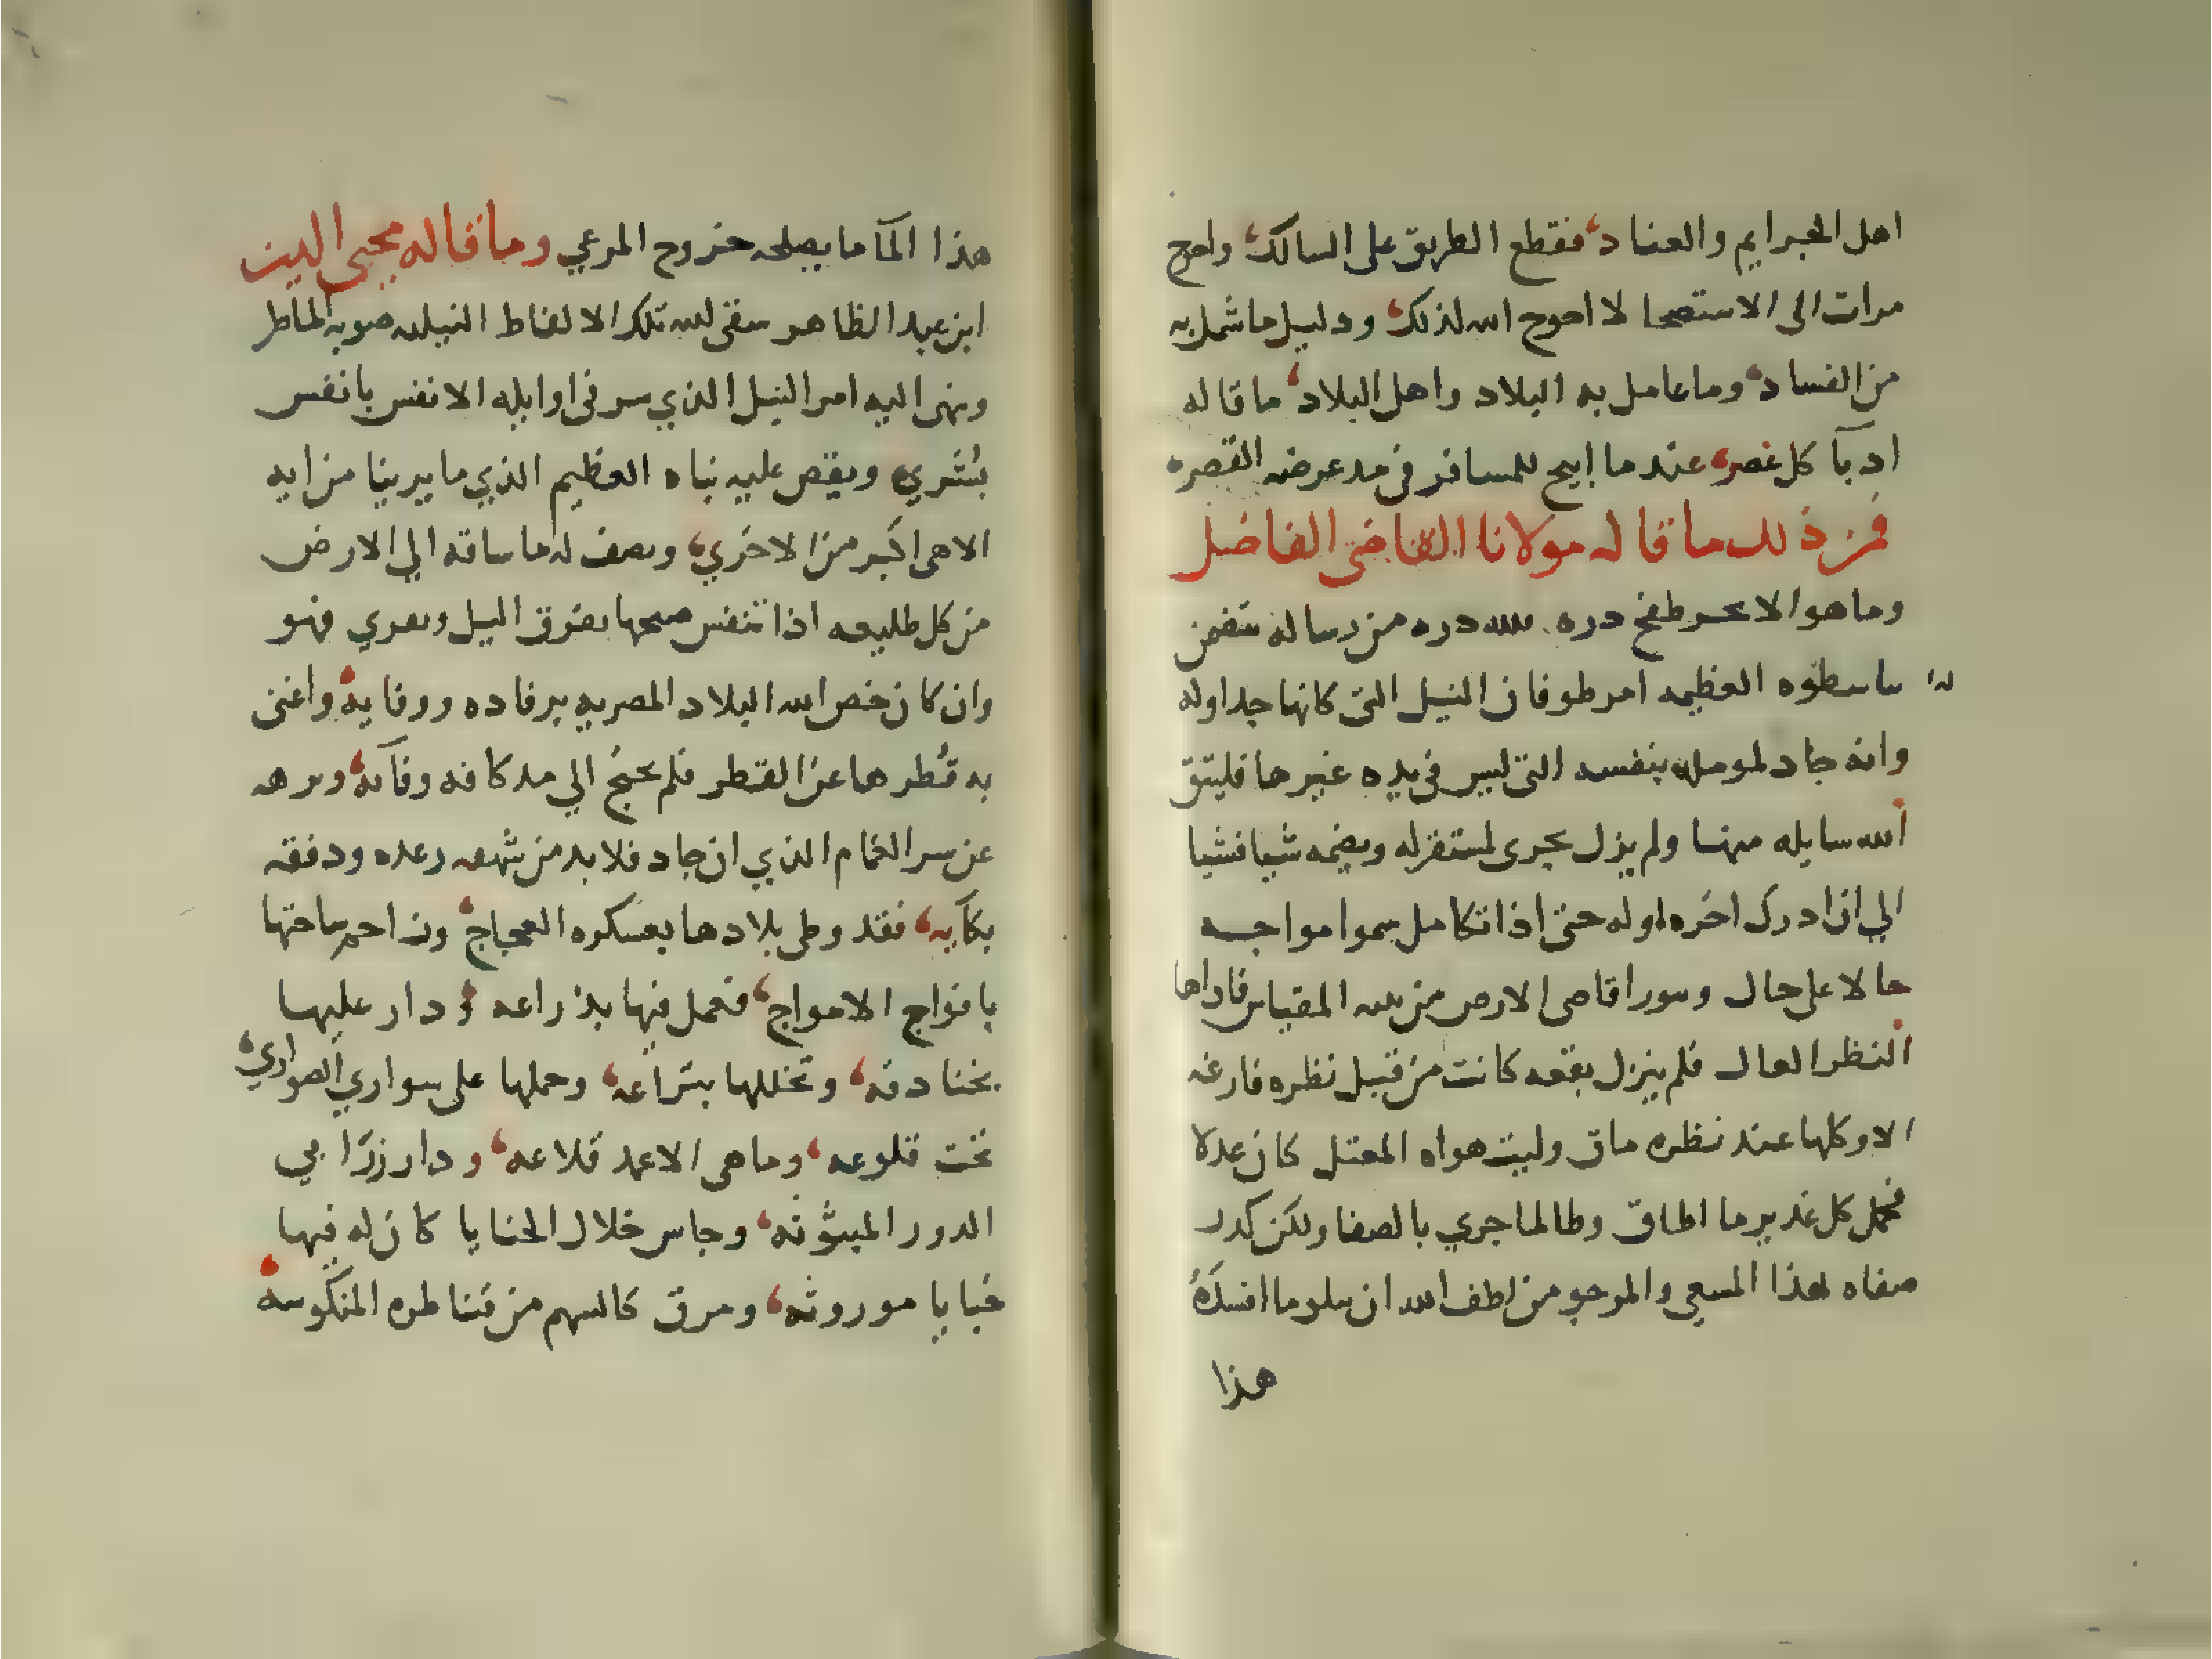 اهل الجرايم والعناد، فقطع الطريق على السالك، واحوج
مرات الى الاستصحا لا احوج الله لذلك، ودليل ما شمل به
من الفساد، وما عامل به البلاد واهل البلاد، ما قاله
ادبآ كل عصر، عندما ابيح للمسافر في مد عرضه القصر،
فمن ذلك ما قاله مولانا القاضى الفاضل
وما هو الا بحر طفح دره، لله دره من رسالة تتضمن
لنا سطوه العظيمه امر طوفان النيل التى كانها جداوله
وانه جاد لمومله بنفسه التى ليس في يده غيرها فليتق
الله سايله منها ولم يزل يجرى لمستقر له ويضمه شيا فشيا
الي ان ادرك اخره اوله حتى اذا تكامل سموا مواجه
حالا على حال وسورا قاصى الارض من المقياس فاداها
النظر العال فلم ينزل بقعه كانت من قبل نظره فارغه
الا وكلها عند نظره ماق وليت هواه المعتل كان عدلا
فحمل كل غدير ما اطاق وطالما جري بالصفا ولكن كدر
صفاه هذا المسعي والمرجو من لطف الله ان يتلو ما افسده
هذا
هذا المآ ما يصلحه خروج المرعي وما قاله محيى الدين
ابن عبد الظاهر سقى الله تلك الالفاظ النيليه صوبه الماطر
وينهى اليه امر النيل الذي سر في اوايله الانفس بانفس
بُشري، ويقص عليه نباه العظيم الذي ما يرينا من ايه
الا هى اكبر من الاخري، ويصف له ما ساقه الي الارض
من كل طليعه اذا تنفس صبحها تفرق الليل وتعري فهو
وان كان خص الله البلاد المصريه برفاده ووقايه، واغنى
به قُطرها عن القطر فلم يحتج الي مد كافه وفآيه، ونزهه
عن سر الغمام الذي ان جاد فلا بد من شهقه رعده ودفقه
بكآيه، فقد وطى بلادها بعسكره العجاج، وزاحم ساحتها
بافواج الامواج، فعمل فيها بذراعه، ودار عليها
بخنادقه، وتخللها بتراعه، وحملها على سواري الصواري،
تحت قلوعه، وما هى الا عمد قلاعه، ودار زرآبي
الدور المبثوثه، وجاس خلال الحنايا كان له فيها
خبايا موروثه، ومرق كالسهم من قناطره المنكوسه،